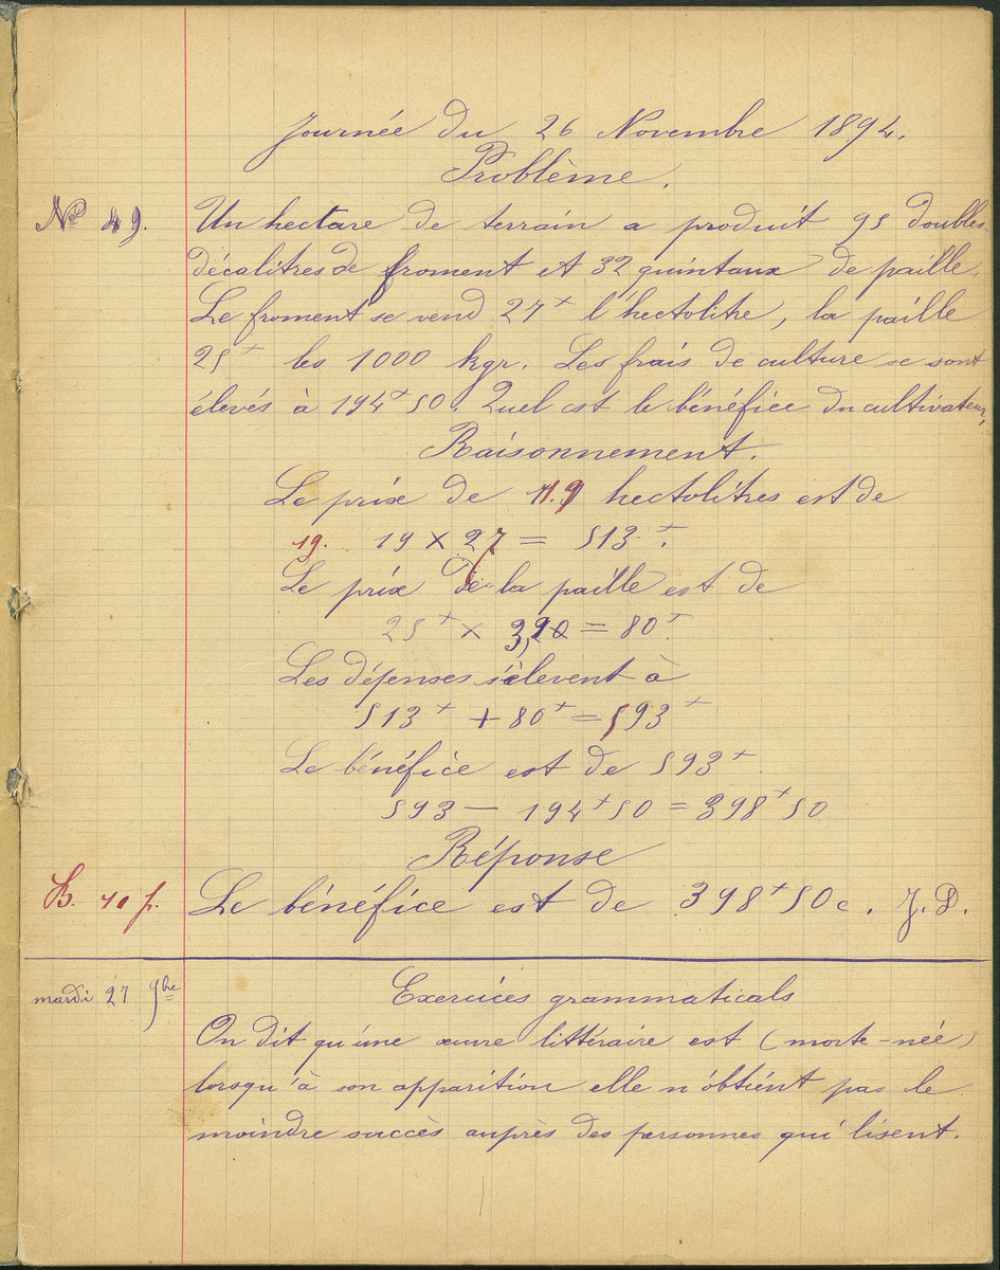 Journée du 26 Novembre 1894.
Problème.
N° 49. Un hectare de terrain a produit 95 doubles
décalitres de froment et 32 quintaux de paille.
Le froment se vend 27f l'hectolitre, la paille
25f les 1000 kgr. Les frais de culture se sont
élevés à 194f50. Quel est le bénéfice du cultivateur,
Raisonnement.
Le prix de 19 hectolitres est de
19. 19 × 27 = 513f.
Le prix de la paille est de
25f × 3,20 = 80f.
Les dépenses s'èlevent à
513f + 80f = 593f
Le bénéfice est de 593f
593 — 194f50 = 398f50
Réponse
B. 10 p. Le bénéfice est de 398f50c. J. D.
mardi 27 9bre Exercices grammaticals
On dit qu'une œuvre littéraire est (morte-née)
lorsqu'à son apparition elle n'obtient pas le
moindre succès auprès des personnes qui lisent.